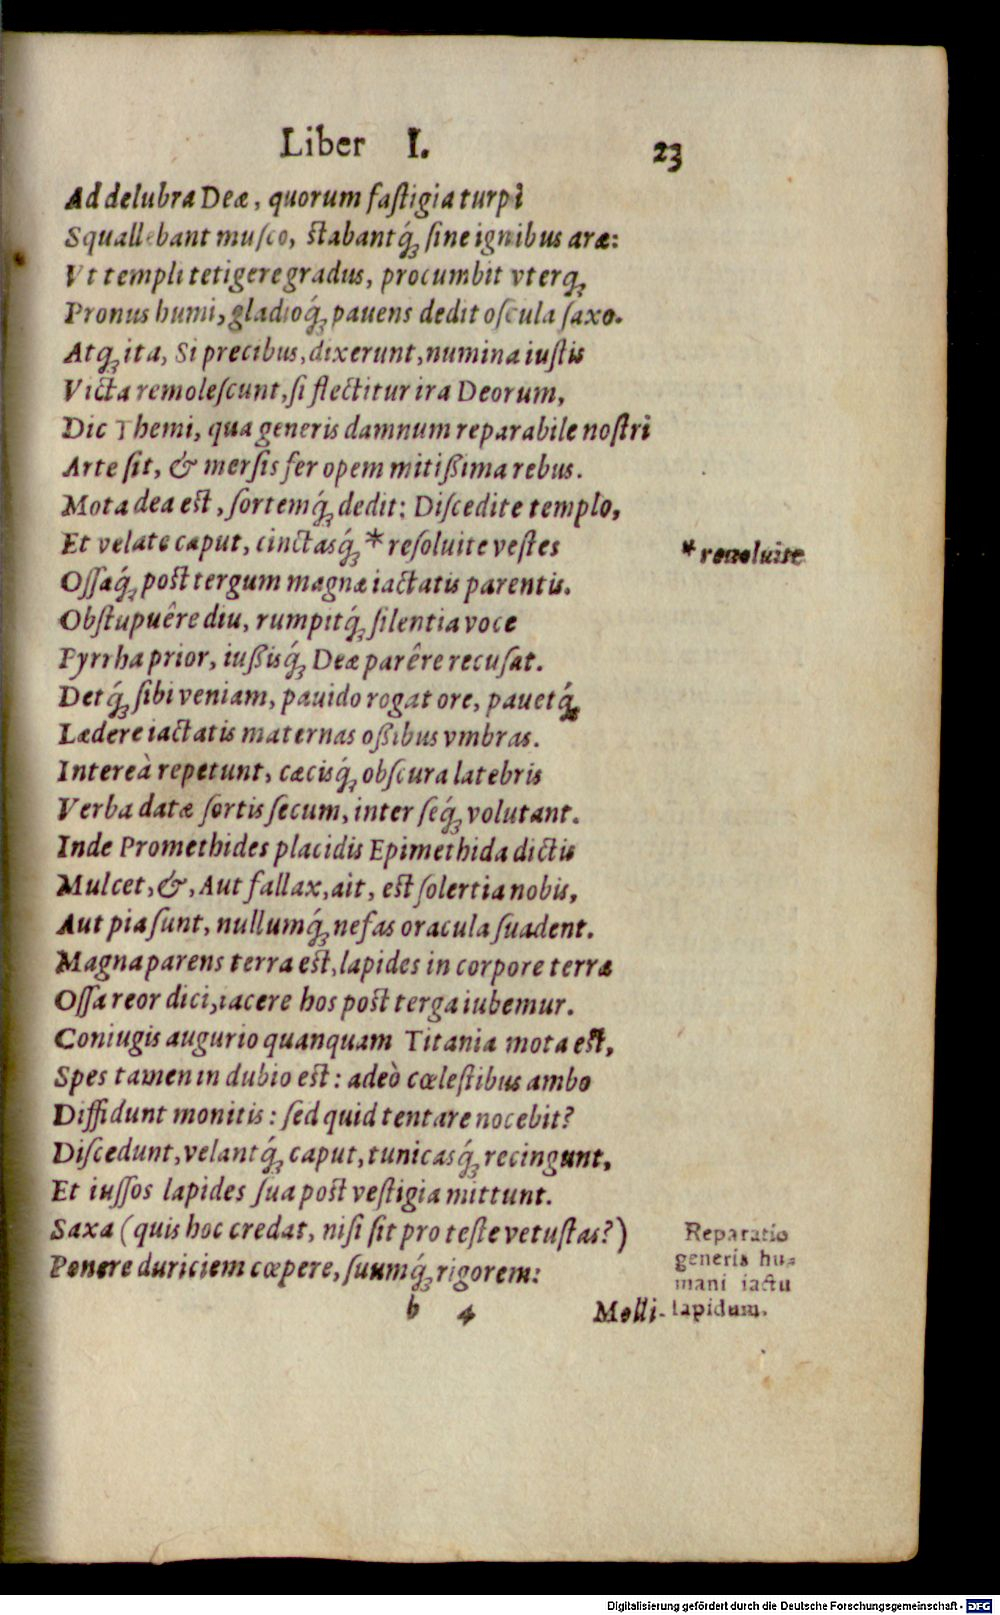 Liber I. 23
Ad delubra Deæ, quorum faſtigia turpi
Squallebant muſco, ſtabantq́; ſine ignibus aræ:
Vt templi tetigere gradus, procumbit vterq;
Pronus humi, gladioq́; pauens dedit oſcula ſaxo.
Atq; ita, Si precibus, dixerunt, numina iuſtis
Victa remoleſcunt, ſi flectitur ira Deorum,
Dic Themi, qua generis damnum reparabile noſtri
Arte ſit, & merſis fer opem mitißima rebus.
Mota dea eſt, ſortemq́; dedit: Diſcedite templo,
Et velate caput, cinctasq́; * reſoluite veſtes
* reuoluite
Oſſaq́; poſt tergum magnæ iactatis parentis.
Obſtupuêre diu, rumpitq́; ſilentia voce
Pyrrha prior, iußisq́; Deæ parêre recuſat.
Detq́; ſibi veniam, pauido rogat ore, pauetq́;
Lædere iactatis maternas oßibus vmbras.
Intereà repetunt, cæcisq́; obſcura latebris
Verba datæ ſortis ſecum, inter ſeq́; volutant.
Inde Promethides placidis Epimethida dictis
Mulcet, &, Aut fallax, ait, eſt ſolertia nobis,
Aut pia ſunt, nullumq́; nefas oracula ſuadent.
Magna parens terra eſt, lapides in corpore terræ
Oſſa reor dici, iacere hos poſt terga iubemur.
Coniugis augurio quanquam Titania mota eſt,
Spes tamen in dubio eſt: adeò cœleſtibus ambo
Diffidunt monitis: ſed quid tentare nocebit?
Diſcedunt, velantq́; caput, tunicasq́; recingunt,
Et iuſſos lapides ſua poſt veſtigia mittunt.
Saxa (quis hoc credat, niſi ſit pro teſte vetuſtas?)
Ponere duriciem cœpere, ſuumq́; rigorem:
Reparatio
generis hu-
mani iactu
lapidum.
b 4 Molli-
Digitalisierung gefördert durch die Deutsche Forschungsgemeinschaft - DFG